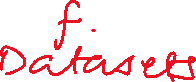 f.
Datasets